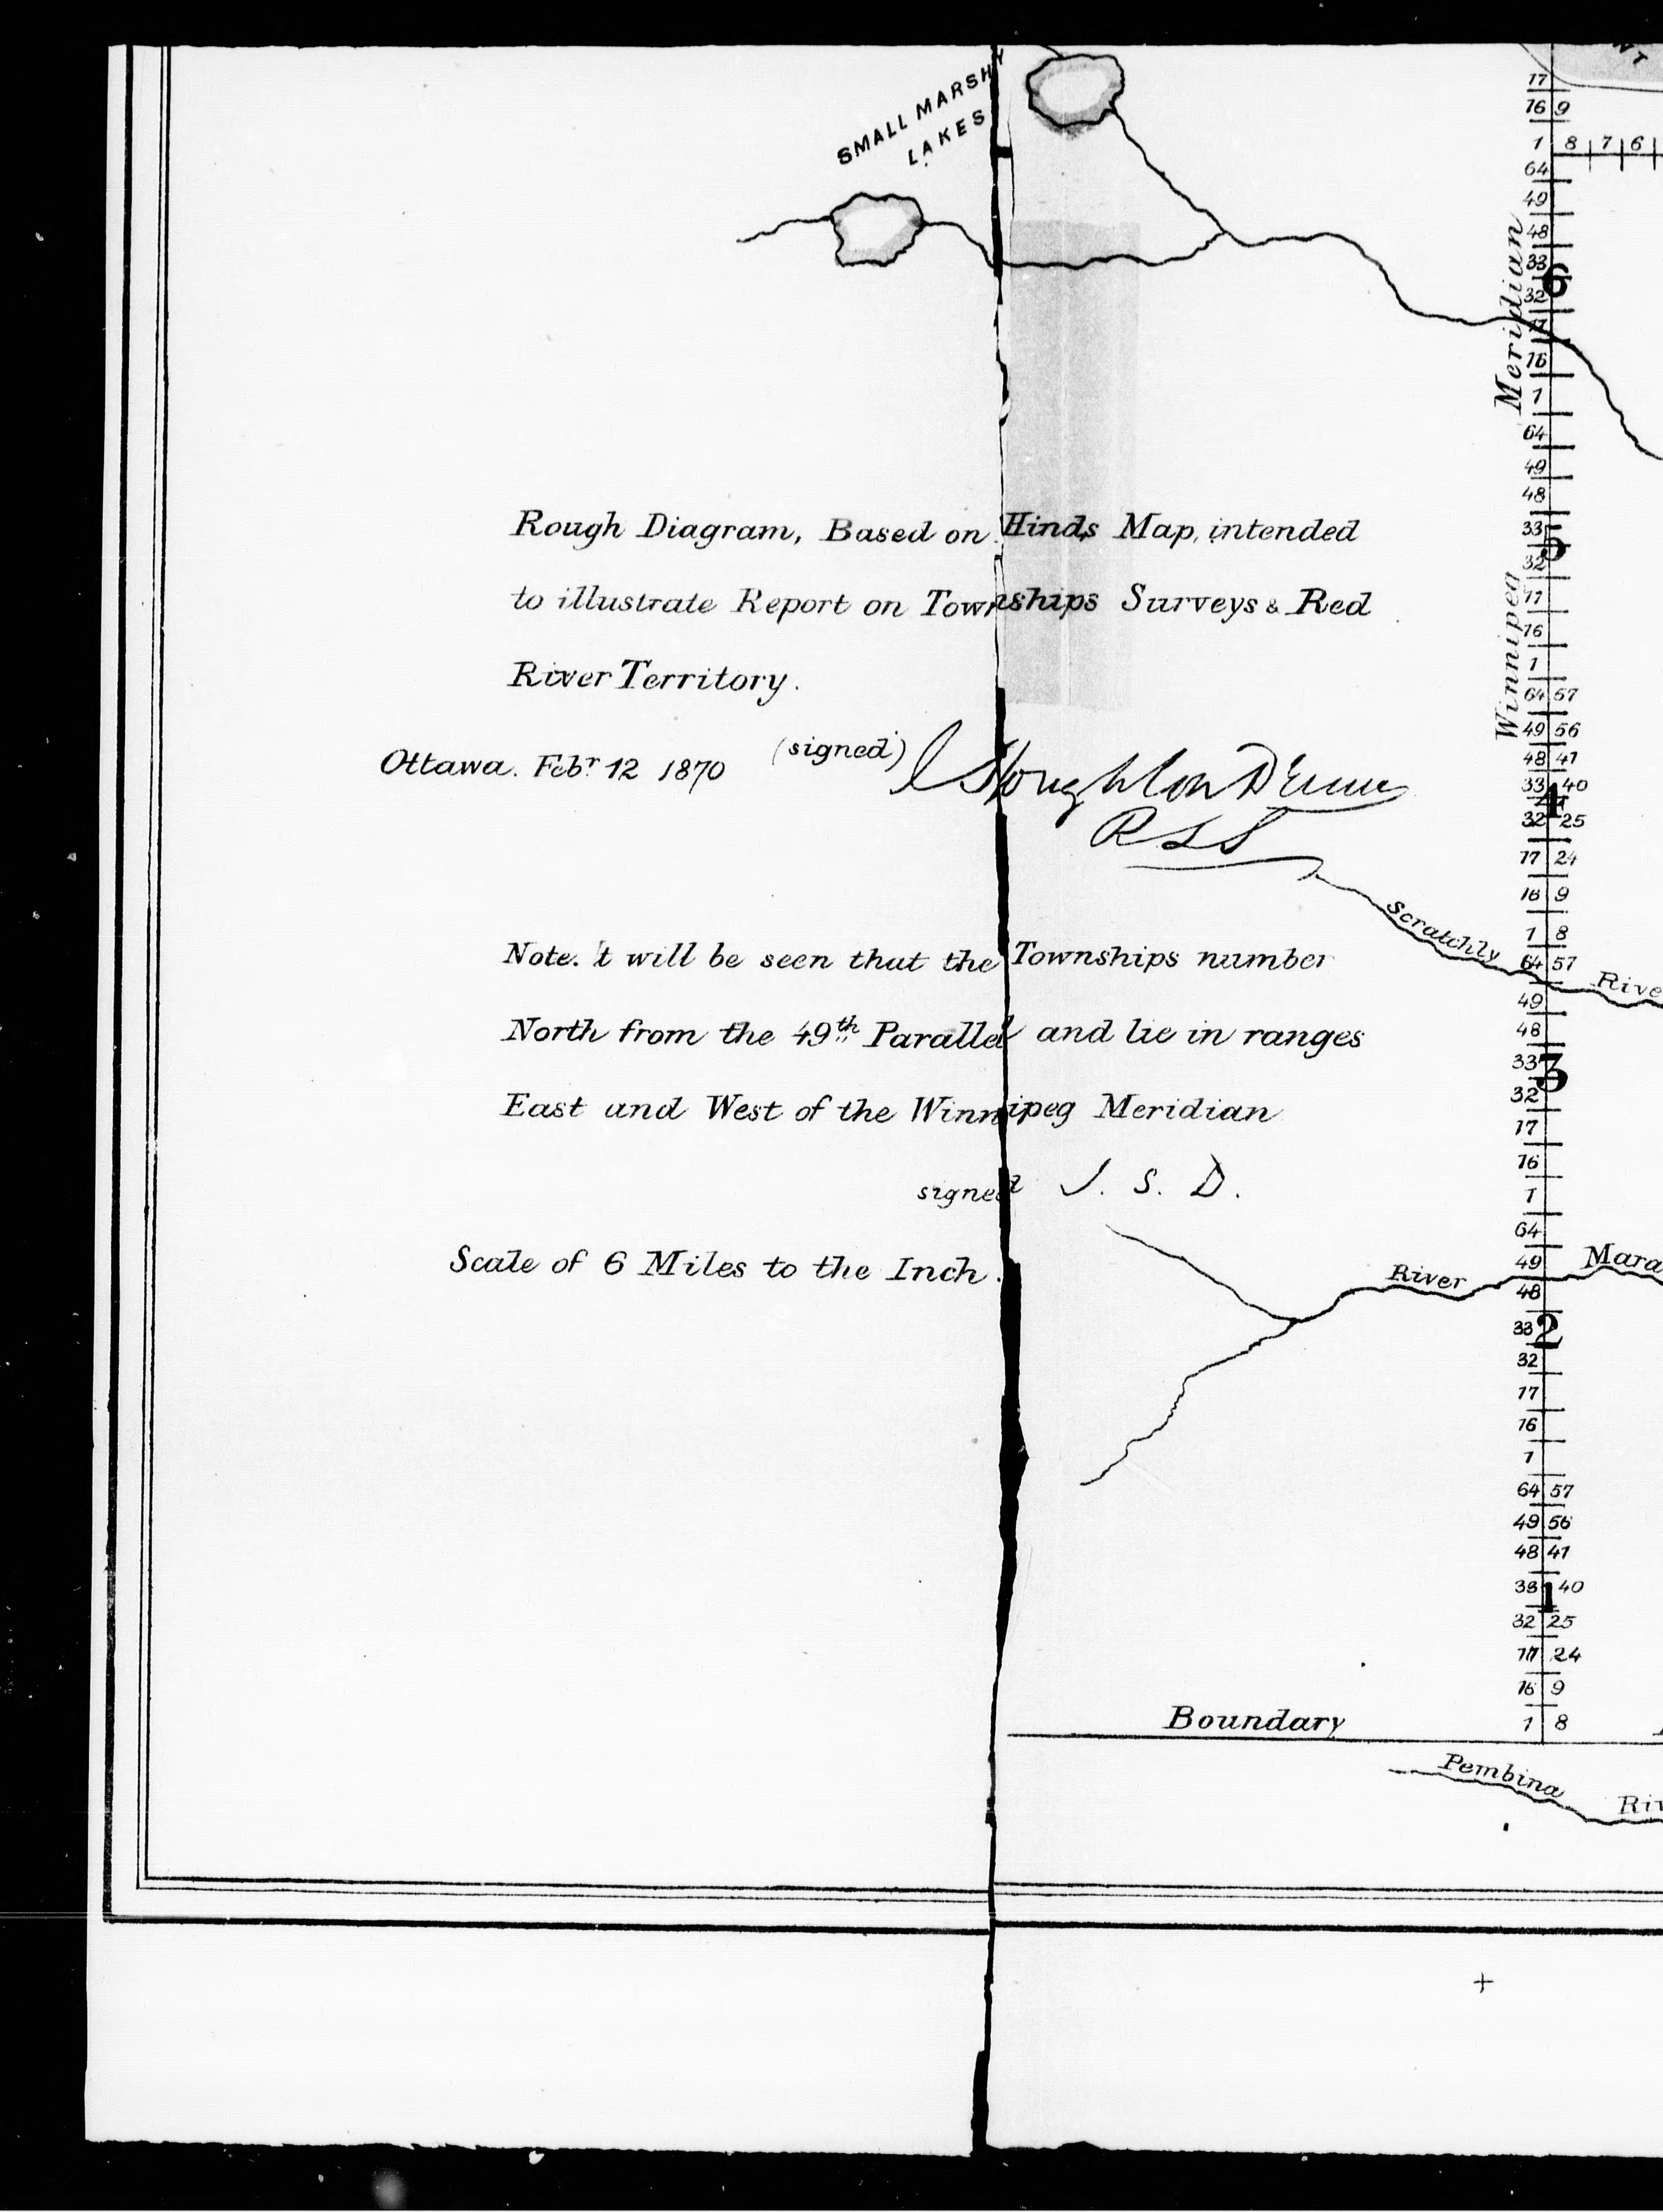 SMALL MARSHY
LAKES
Rough Diagram, Based on Hinds Map, intended
to illustrate Report on Townships Surveys & Red
River Territory.
Ottawa. Febr 12 1870 (signed) J Stoughton Dennis
Note. It will be seen that the Townships number
North from the 49th Parallel and lie in ranges
East and West of the Winnipeg Meridian
signed J. S. D.
Scale of 6 Miles to the Inch.
Winnipeg Meridian
17
16 9
1 8 7 6
64
49
48
33
6
32
17
16
1
64
49
48
33
5
32
17
16
1
64 57
49 56
48 41
33 40
4
32 25
17 24
16 9
1 8
64 57
Scratchly Rive
49
48
33
3
32
17
16
1
64
49
River Mara
48
33
2
32
17
16
1
64 57
49 56
48 41
33 40
1
32 25
17 24
16 9
1 8
Boundary
Pembina Riv